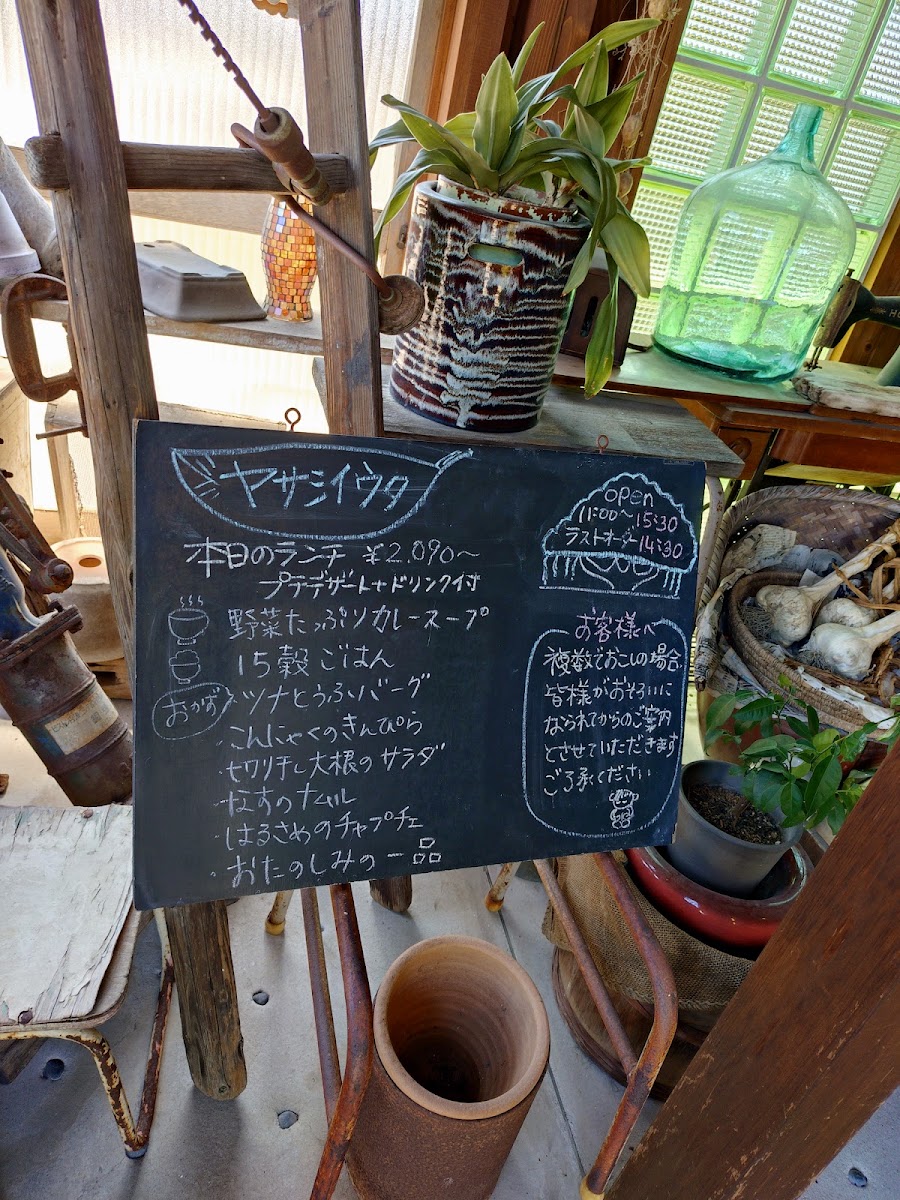 ヤサシイウタ
本日のランチ ¥2.090~
プチデザート+ドリンク付
野菜たっぷりカレースープ
15穀ごはん
おかず
・ツナとうふバーグ
・こんにゃくのきんぴら
・切り干し大根のサラダ
・なすのナムル
・はるさめのチャプチェ
・おたのしみの一品
open
11:00~15:30
ラストオーダー14:30
お客様へ
複数でおこしの場合、
皆様がおそろいに
なられてからのご案内
とさせていただきます
ご了承ください